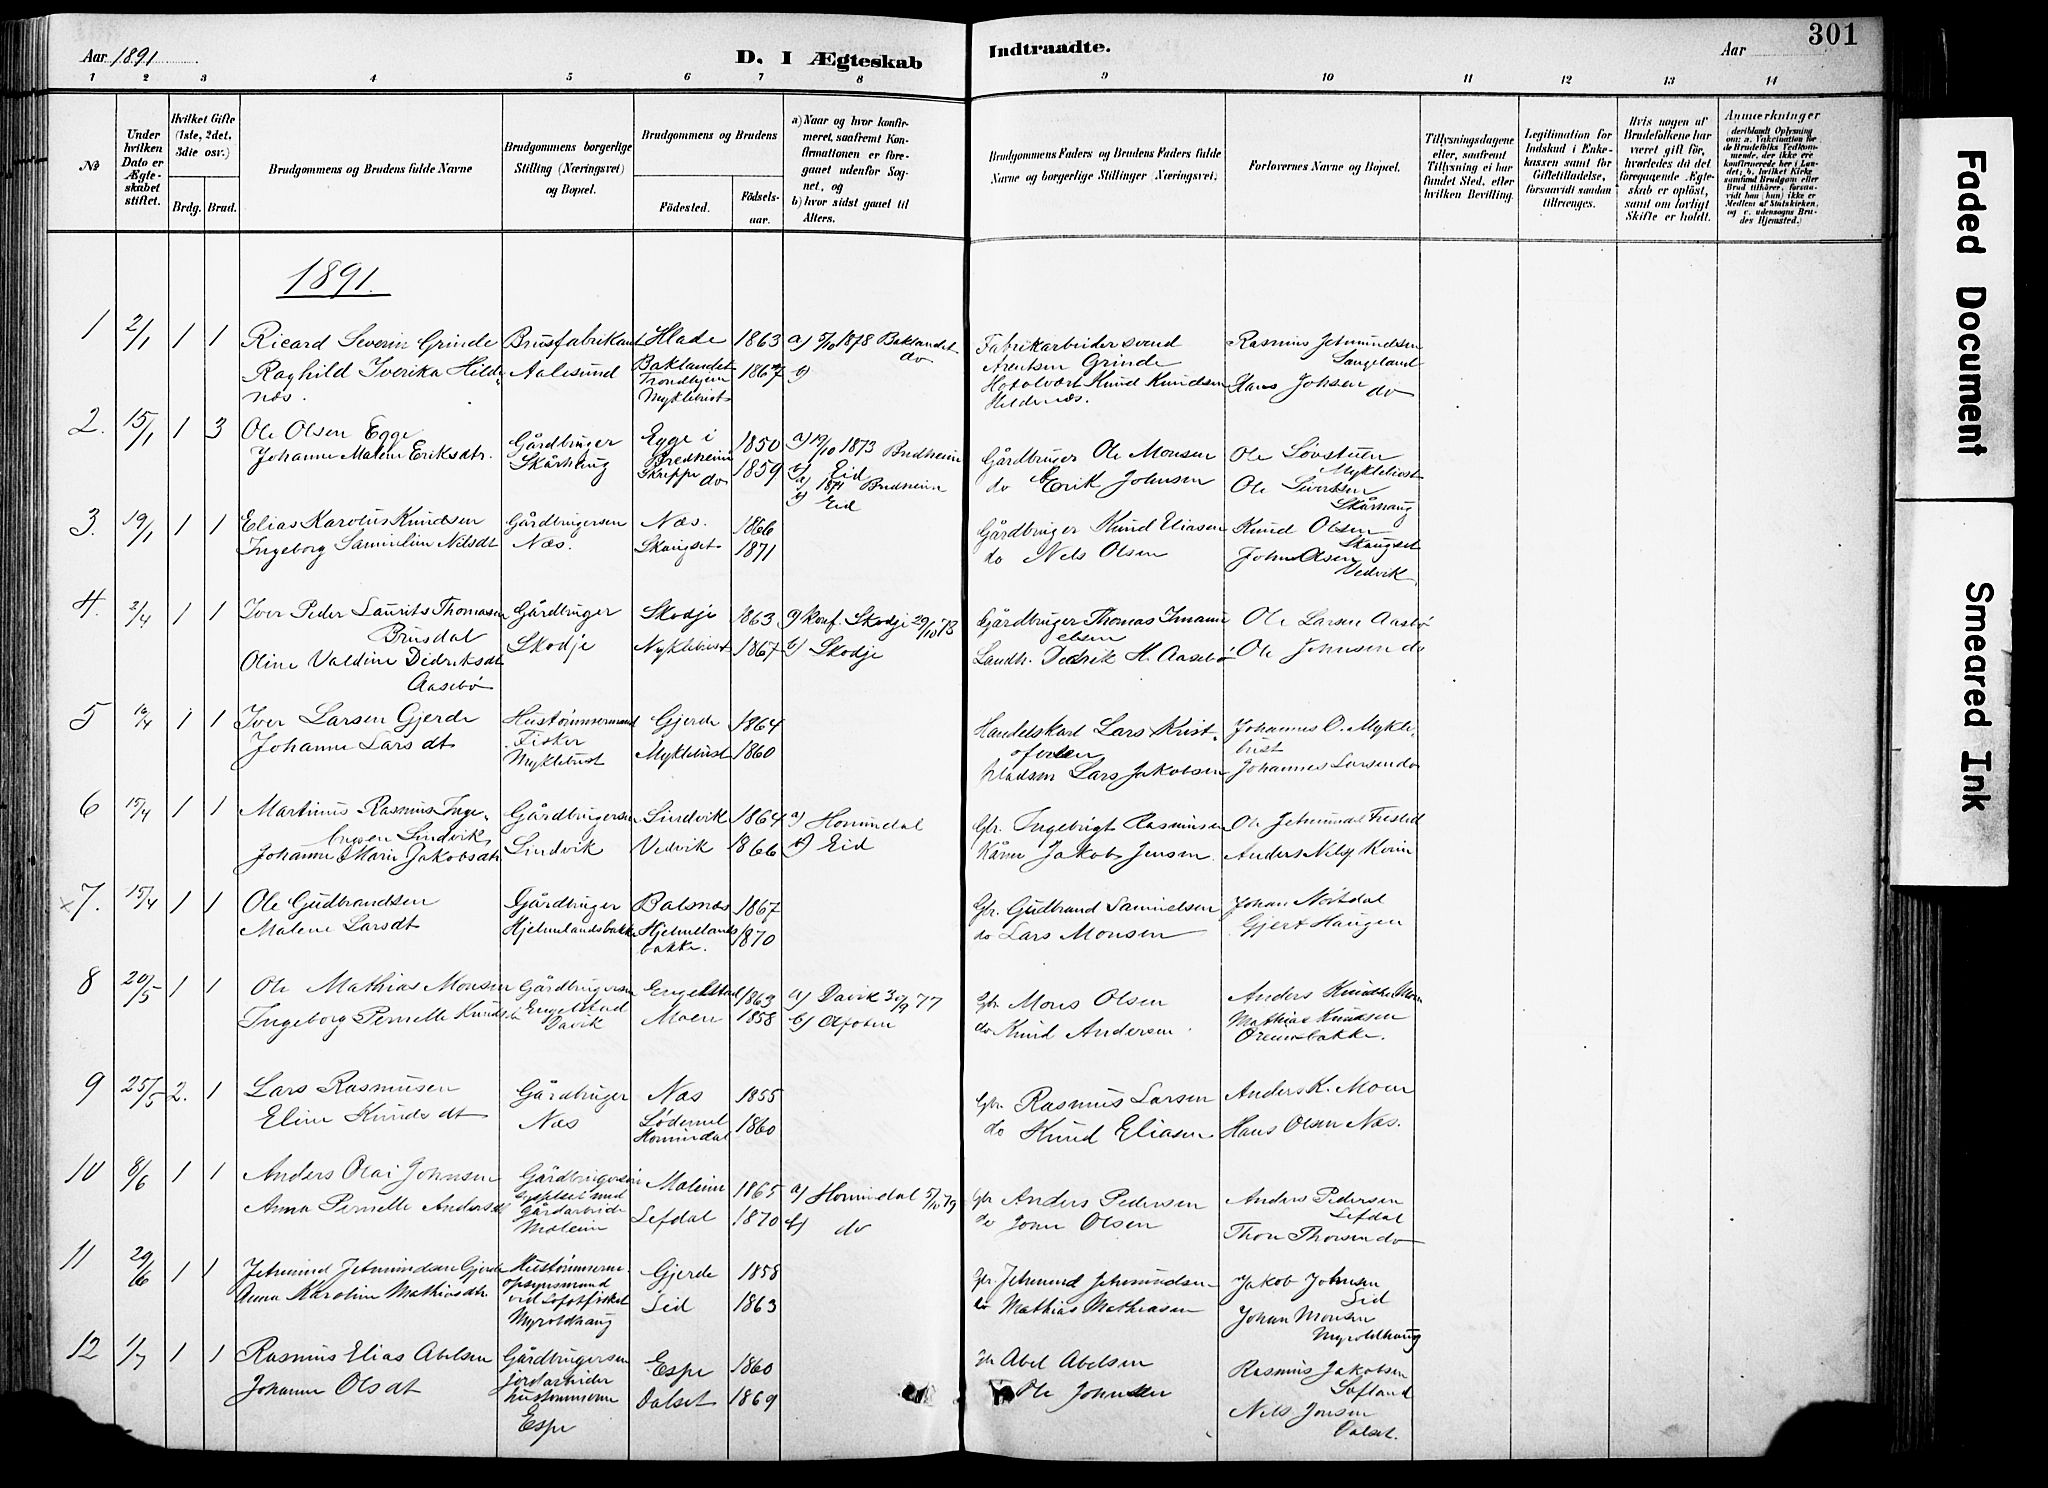 301
Aar 1891
D. I Ægteskab Indtraadte.
Aar
1 2 3 4 5 6 7 8 9 10 11 12 13 14
№
Under hvilken Dato er Ægteskabet stiftet.
Hvilket Gifte (1ste, 2det, 3die osv.)
Brdg. Brud.
Brudgommens og Brudens fulde Navne
Brudgommens borgerlige Stilling (Næringsvei) og Bopæl.
Brudgommens og Brudens
Fødested.
Fødselsaar.
a) Naar og hvor konfirmeret, saafremt Konfirmationen er foregaaet udenfor Sognet, og
b) hvor sidst gaaet til Alters.
Brudgommens Faders og Brudens Faders fulde Navne og borgerlige Stillinger (Næringsvei).
Forlovernes Navne og Bopæl.
Tillysningsdagene eller, saafremt Tillysning ei har fundet Sted, efter hvilken Bevilling.
Legitimation for Indskud i Enkekassen samt for Giftetilladelse, forsaavidt saadan tiltrænges.
Hvis nogen af Brudefolkene har været gift før, hvorledes da det foregaaende Ægteskab er opløst, samt om lovligt Skifte er holdt.
Anmærkninger
(deriblandt Oplysning om: a. Vakcination for de Brudefolks Vedkommende, der ikke ere konfirmerede her i Landet; b. hvilket Kirkesamfund Brudgom eller Brud tilhører, forsaavidt han (hun) ikke er Medlem af Statskirken, og c. udensogns Brudes Hjemsted.)
1891.
1 2/1 1 1 Ricard Severin Grinde Brusfabrikant Hlade 1863 a) 5/10 1878 Baklandet Fabrikarbeider Svend Rasmus Jetmundsen
Aalesund Baklandet Trondhjem do Arentsen Grinde Langeland
Raghild Iverika Hildenæs. Myklebust 1867 b) Knud Knudsen Hildenæs. Hans Johsen do
2. 15/1 1 3 Ole Olsen Egge Gårdbruger Egge i Bredheim 1850 a) 19/10 1873 Bredheim Gårdbruger Ole Monsen Ole Løvstuen
Johanne Malene Eriksdtr. Skårhaug Skrippe do 1859 b) Eid do Erik Johnsen Myklebust
a) 1874 Bredheim Ole Sivertsen
b) Eid Skårhaug
3. 19/1 1 1 Elias Karolus Knudsen Gårdbrugersøn Næs. 1866 Gårdbruger Knud Eliasen Knud Olsen
Ingeborg Samueline Nilsdt Næs. Skaugset 1871 do Nels Olsen Skaugset
John Olsen Vedvik
4. 2/4 1 1 Iver Peder Laurits Thomasen Gårdbruger Skodje 1863 a) Konf. Skodje Gårdbruger Thomas Ole Larsen Aasebø
Brusdal Skodje
Oline Valdine Didriksdt Myklebust 1867 b) Skodje Landh. Didrik H. Aasebø Ole Johnsen do
Aasebø
5 1 1 Iver Larsen Gjerde Fisker Gjerde 1864 Handelskarl Lars Kristofersen Johannes O. Myklebust
Johanne Larsdt Myklebust Myklebust 1860 Lars Jakobsen Johannes Larsen do
6 15/4 1 1 Martinus Rasmus Gårdbrugersøn Lindvik 1864 a) Hornindal Gbr. Ingebrigt Rasmussen
Lindvik
Johanne Marie Jakobsdtr Lindvik Vedvik 1866 b) Eid Jakob Jensen
7. 15/4 1 1 Ole Gudbrandsen Gårdbruger Balsnæs 1867 Gbr. Gudbrand Samuelsen Johan Nøstdal
Malene Larsdt Hjelmelandsbakke Hjelmelandsbakke. 1870 do Lars Monsen Gjert Haugen
8 20/5 1 1 Ole Mathias Monsen Gårdbrugersøn Engelstad 1863 a) Davik 30/9 77 Gbr Mons Olsen Anders Knudsen Moen
Ingeborg Pernelle Knudsdt Engelstad Davik Moen 1858 b) Aafoten do Knud Andersen Mathias Knudsen
9 25/5 2. 1 Lars Rasmusen Gårdbruger Næs 1855 Gbr. Rasmus Larsen Anders K. Moen
Eline Knudsdt Næs Hornindal 1860 do Knud Eliasen Hans Olsen Næs.
10 8/6 1 1 Anders Olai Johnsen Gårdbrugersøn Maleim 1865 a) Hornindal 5/10 79 Gbr Anders Pedersen Anders Pedersen Lefdal
Anna Pernelle Andersdt gårdarbeide Maleim Lefdal 1870 b) do do John Olsen Thor Thorsen do
11 29/6 1 1 Jetmund Jetmundsen Gjerde Gjerde 1858 Gbr. Jetmund Jetmundsen Jakob Johnsen Lid
Anna Karoline Mathiasdtr opsynsmand ved Lofotfisket Myroldhaug Lid 1863 do Mathias Mathiasen Johan Monsen Myroldhaug
12 1/7 1 1 Rasmus Elias Abelsen Gårdbrugersøn Espe 1860 Gbr Abel Abelsen Rasmus Jakobsen
Johanne Olsdt jordarbeider Espe Dalset 1869 Ole Johnsen Nils Jonsen Dalset.
Faded Document
Smeared Ink